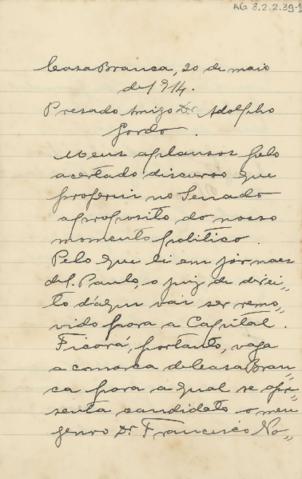 AG 3.2.2.39-1
Casa Branca, 20 de maio
de 1914.
Presado Amigo Dr. Adolpho
Gordo.
Meus aplausos pelo
acertado discurso que
proferiu no Senado
aproposito do nosso
momento politico.
Pelo que li em jornaes
de S. Paulo, o juiz de direi-
to d'aqui vai ser remo-
vido para a Capital.
Ficará, portanto, vaga
a comarca de Casa Bran-
ca para a qual se apre-
senta candidato o meu
genro Dr. Francisco No-